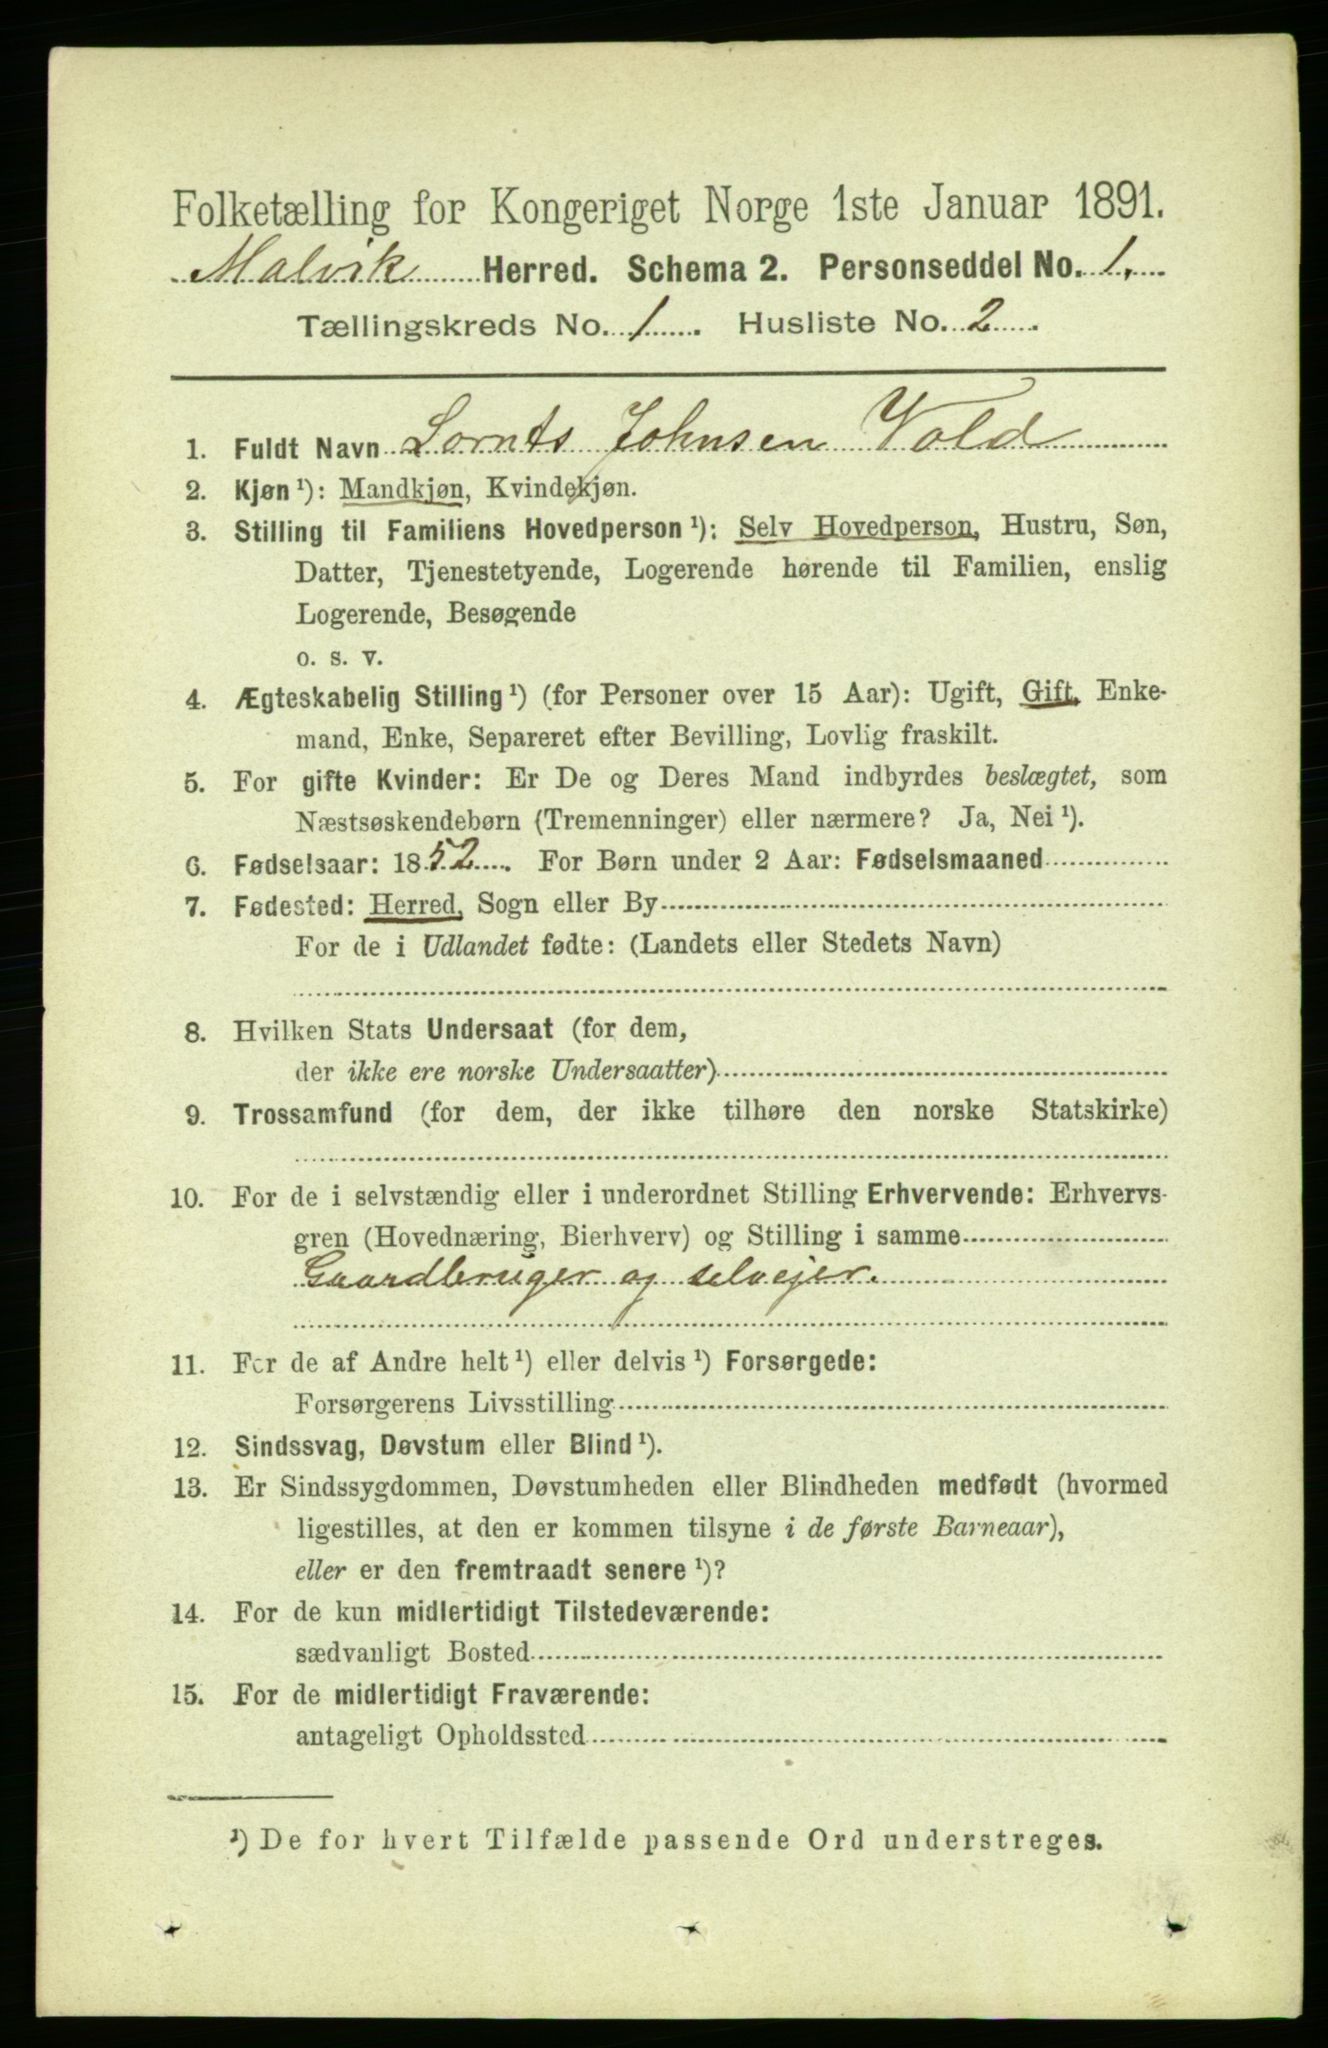 Folketælling for Kongeriget Norge 1ste Januar 1891.
Malvik Herred. Schema 2. Personseddel No. 1.
Tællingskreds No. 1. Husliste No. 2.
1. Fuldt Navn Lornts Johnsen Vold
2. Kjøn ¹): Mandkjøn, Kvindekjøn.
3. Stilling til Familiens Hovedperson ¹): Selv Hovedperson, Hustru, Søn,
Datter, Tjenestetyende, Logerende hørende til Familien, enslig
Logerende, Besøgende
o. s. v.
4. Ægteskabelig Stilling ¹) (for Personer over 15 Aar): Ugift, Gift, Enke-
mand, Enke, Separeret efter Bevilling, Lovlig fraskilt.
5. For gifte Kvinder: Er De og Deres Mand indbyrdes beslægtet, som
Næstsøskendebørn (Tremenninger) eller nærmere? Ja, Nei ¹).
6. Fødselsaar: 1852. For Børn under 2 Aar: Fødselsmaaned
7. Fødested: Herred, Sogn eller By
For de i Udlandet fødte: (Landets eller Stedets Navn)
8. Hvilken Stats Undersaat (for dem,
der ikke ere norske Undersaatter)
9. Trossamfund (for dem, der ikke tilhøre den norske Statskirke)
10. For de i selvstændig eller i underordnet Stilling Erhvervende: Erhvervs-
gren (Hovednæring, Bierhverv) og Stilling i samme
Gaardbruger og selvejer.
11. For de af Andre helt ¹) eller delvis ¹) Forsørgede:
Forsørgerens Livsstilling
12. Sindssvag, Døvstum eller Blind ¹).
13. Er Sindssygdommen, Døvstumheden eller Blindheden medfødt (hvormed
ligestilles, at den er kommen tilsyne i de første Barneaar),
eller er den fremtraadt senere ¹)?
14. For de kun midlertidigt Tilstedeværende:
sædvanligt Bosted
15. For de midlertidigt Fraværende:
antageligt Opholdssted
¹) De for hvert Tilfælde passende Ord understreges.